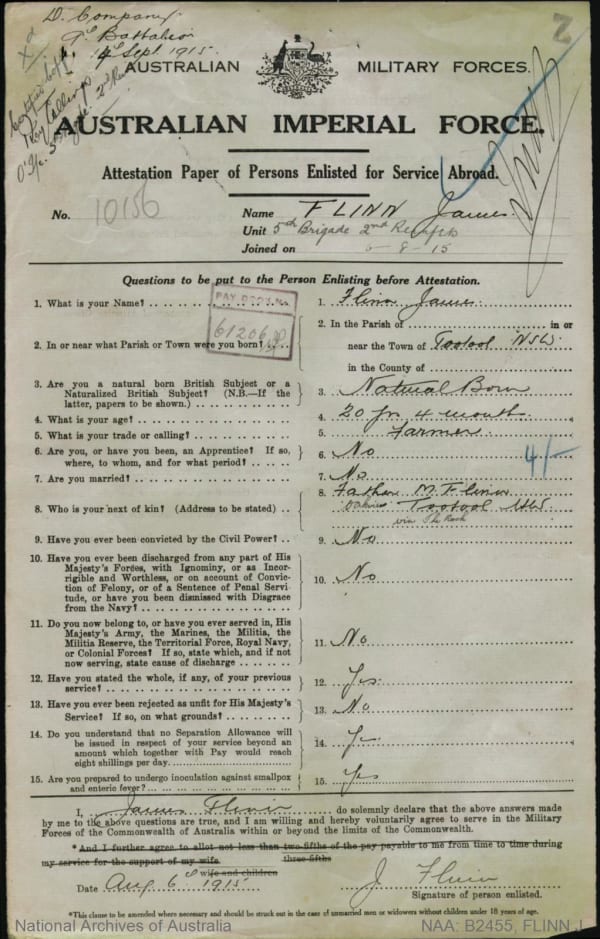 D. Company
Battalion
Sept 1915
AUSTRALIAN MILITARY FORCES.
AUSTRALIAN IMPERIAL FORCE.
Attestation Paper of Persons Enlisted for Service Abroad.
No. 10156
Name FLINN James.
Unit 5th Brigade 2nd Reinfts
Joined on 6-8-15
Questions to be put to the Person Enlisting before Attestation.
1. What is your Name? 1. Flinn James.
PAY BOOK No.
61206
2. In or near what Parish or Town were you born? 2. In the Parish of in or
near the Town of Tootool NSW.
in the County of
3. Are you a natural born British Subject or a
Naturalized British Subject? (N.B.—If the
latter, papers to be shown.) 3. Natural Born
4. What is your age? 4. 20 yrs 4 months
5. What is your trade or calling? 5. Farmer.
6. Are you, or have you been, an Apprentice? If so,
where, to whom, and for what period? 6. No
4/-
7. Are you married? 7. No
8. Who is your next of kin? (Address to be stated) 8. Father M. Flinn
Tootool NSW
via The Rock
9. Have you ever been convicted by the Civil Power? 9. No
10. Have you ever been discharged from any part of His
Majesty's Forces, with Ignominy, or as Incor-
rigible and Worthless, or on account of Convic-
tion of Felony, or of a Sentence of Penal Servi-
tude, or have you been dismissed with Disgrace
from the Navy? 10. No
11. Do you now belong to, or have you ever served in, His
Majesty's Army, the Marines, the Militia, the
Militia Reserve, the Territorial Force, Royal Navy,
or Colonial Forces? If so, state which, and if not
now serving, state cause of discharge 11. No
12. Have you stated the whole, if any, of your previous
service? 12. Yes.
13. Have you ever been rejected as unfit for His Majesty's
Service? If so, on what grounds? 13. No
14. Do you understand that no Separation Allowance will
be issued in respect of your service beyond an
amount which together with Pay would reach
eight shillings per day. 14. Yes
15. Are you prepared to undergo inoculation against smallpox
and enteric fever? 15. Yes
I, James Flinn do solemnly declare that the above answers made
by me to the above questions are true, and I am willing and hereby voluntarily agree to serve in the Military
Forces of the Commonwealth of Australia within or beyond the limits of the Commonwealth.
* And I further agree to allot not less than two-fifths of the pay payable to me from time to time during
three-fifths
my service for the support of my wife
wife and children
Date Aug 6th 1915 J Flinn
Signature of person enlisted.
*This clause to be amended where necessary and should be struck out in the case of unmarried men or widowers without children under 18 years of age.
National Archives of Australia NAA: B2455, FLINN J